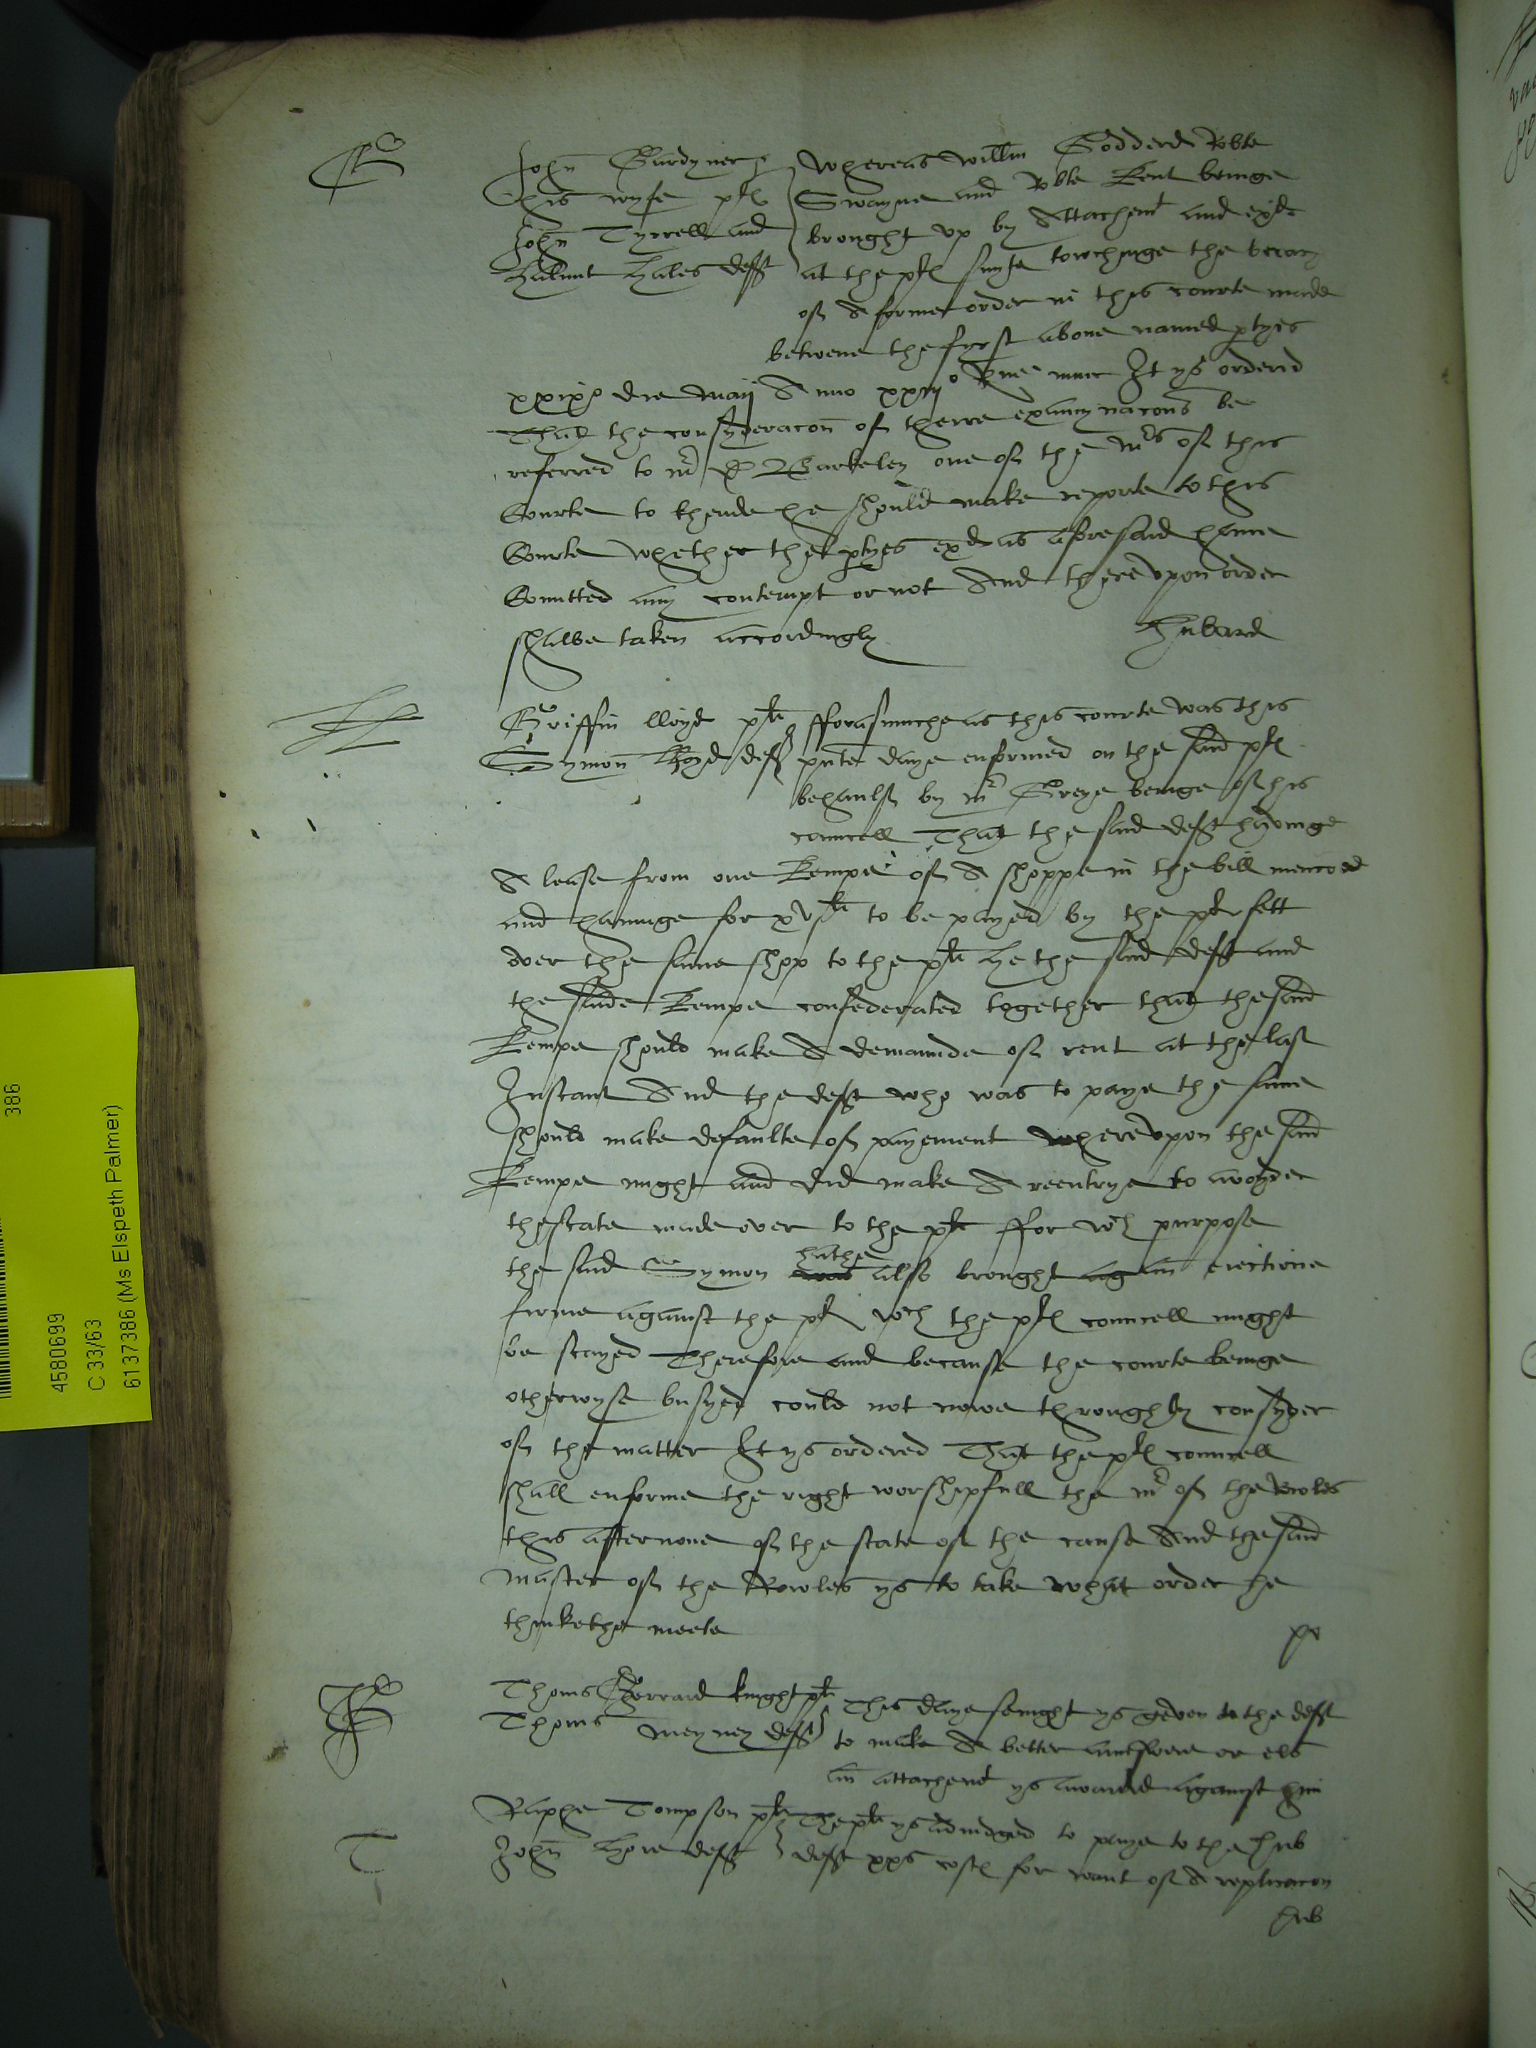 G
John Gardyner &
his wyfe pl
John Tyrrell and
Hales deff
Whereas Willm Godderd Robte
Swayne and Robte Kent beinge
brought up by Attachemt and exd
at the pl suyte towchinge the breach
of A former order in this courte made
betwene the fyrst above named ptyes
xxixo die Maij Anno Rne nunc It ys ordered
That the consyderacon of theire examynacons be
referred to mr D Barkeley one of the mrs of this
Courte to thende he should make reporte to this
Courte whether the ptyes exd as aforesaid have
Comitted any contempt or not And thereupon order
shalbe taken accordingly
Hubard
Griffin lloyd plt
Symon deff
fforasmuche as this courte was this
pnte daye enformed on the said pl
behaulf by mr Greye beinge of his
councell That the said deff havinge
A lease from one Kempe of A shoppe in the bill menconed
and havinge for to be payed by the pl sett
over the same shop to the plt he the said deff and
the saide Kempe confederated together that the said
Kempe should make A demaunde of rent at the last
Instant And the deff who was to paye the same
should make defaulte of payement whereupon the said
Kempe might and did make A reentrye to avoyde
thestate made over to the plt ffor wch purpose
the said Symon hathe also brought an eiectione
firme against the pl wch the pl councell might
be stayed Therefore and because the courte beinge
otherwyse busyed could not nowe throughly consyder
of the matter It ys ordered That the pl councell
shall enforme the right worshipfull the mr of the Rowles
this afternone of the state of the cause And the said
Master of the Rowles ys to take what order he
thinkethe meete
Thoms Gerrard knight plt
Thoms Meyney deff
This daye senight ys geven to the deff
to make A better aunswere or els
an attachemt ys awarded against him
T
Raphe Tompson plt
John Hore deff
The plt ys adiudged to paye to the Hub
deff xxs costs for want of A replicacon
Hub
386
4580699
C 33/63
6137386 (Ms Elspeth Palmer)